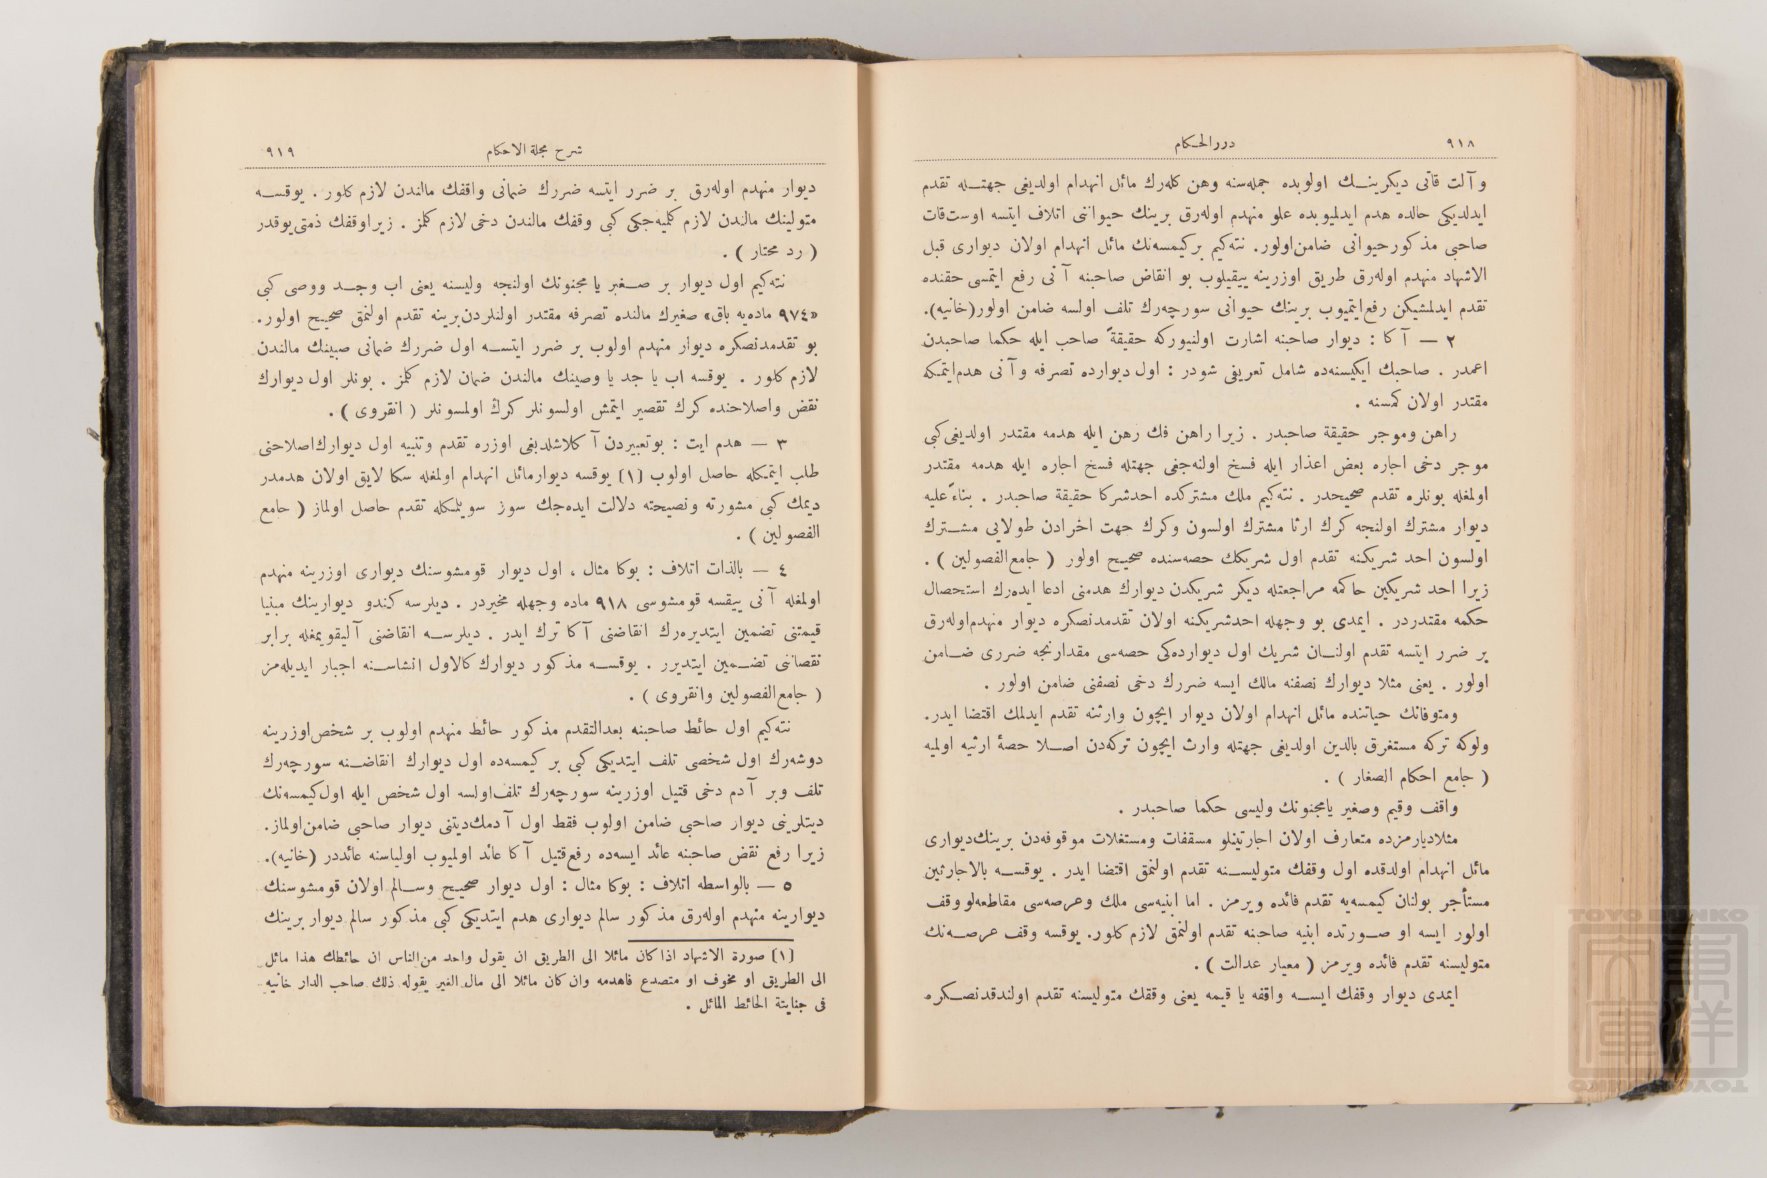 ٩١٨
دررالحكام
و آلت قاتى ديكرينك اولوبده جمله‌سنه وهن كله‌رك مائل انهدام اولديغى جهتله تقدم
ايدلديكى حالده هدم ايدلميوبده علو منهدم اوله‌رق برينك حيواننى اتلاف ايتسه اوست‌قات
صاحبى مذكورحيوانى ضامن‌اولور. نته‌كيم بركيمسه‌نك مائل انهدام اولان ديوارى قبل
الاشهاد منهدم اوله‌رق طريق اوزرينه ييقيلوب بو انقاض صاحبنه آنى رفع ايتمسى حقنده
تقدم ايدلمشيكن رفع‌ايتميوب برينك حيوانى سورچه‌رك تلف اولسه ضامن اولور(خانيه).
٢ — آكا : ديوار صاحبنه اشارت اولنيوركه حقيقةً صاحب ايله حكما صاحبدن
اعمدر . صاحبك ايكيسنه‌ده شامل تعريفى شودر : اول ديوارده تصرفه و آنى هدم‌ايتمكه
مقتدر اولان كمسنه .
راهن وموجر حقيقة صاحبدر . زيرا راهن فك رهن ايله هدمه مقتدر اولديغى‌كبى
موجر دخى اجاره بعض اعذار ايله فسخ اولنه‌جغى جهتله فسخ اجاره ايله هدمه مقتدر
اولمغله بونلره تقدم صحيحدر . نته‌كيم ملك مشتركده احدشركا حقيقة صاحبدر . بناءً عليه
ديوار مشترك اولنجه كرك ارثا مشترك اولسون وكرك جهت اخرادن طولايى مشترك
اولسون احد شريكنه تقدم اول شريكك حصه‌سنده صحيح اولور ( جامع‌الفصولين ) .
زيرا احد شريكين حاكمه مراجعتله ديكر شريكدن ديوارك هدمنى ادعا ايده‌رك استحصال
حكمه مقتدردر . ايمدى بو وجهله احدشريكنه اولان تقدمدنصكره ديوار منهدم‌اوله‌رق
بر ضرر ايتسه تقدم اولنان شريك اول ديوارده‌كى حصه‌سى مقدارنجه ضررى ضامن
اولور . يعنى مثلا ديوارك نصفنه مالك ايسه ضررك دخى نصفنى ضامن اولور .
ومتوفانك حياتنده مائل انهدام اولان ديوار ايچون وارثنه تقدم ايدلمك اقتضا ايدر.
ولوكه تركه مستغرق بالدين اولديغى جهتله وارث ايچون تركه‌دن اصلا حصۀ ارثيه اولميه
( جامع احكام الصغار ) .
واقف وقيم وصغير يامجنونك وليسى حكما صاحبدر .
مثلاديارمزده متعارف اولان اجارتينلو مسقفات ومستغلات موقوفه‌دن برينك‌ديوارى
مائل انهدام اولدقده اول وقفك متوليسنه تقدم اولنمق اقتضا ايدر . يوقسه بالاجارتين
مستأجر بولنان كيمسه‌يه تقدم فائده ويرمز . اما ابنيه‌سى ملك وعرصه‌سى مقاطعه‌لووقف
اولور ايسه او صورتده ابنيه صاحبنه تقدم اولنمق لازم كلور. يوقسه وقف عرصه‌نك
متوليسنه تقدم فائده ويرمز ( معيار عدالت ) .
ايمدى ديوار وقفك ايسه واقفه يا قيمه يعنى وقفك متوليسنه تقدم اولندقدنصكره
شرح مجلة الاحكام
٩١٩
ديوار منهدم اوله‌رق بر ضرر ايتسه ضررك ضمانى واقفك مالندن لازم كلور . يوقسه
متولينك مالندن لازم كلميه‌جكى كبى وقفك مالندن دخى لازم كلمز . زيراوقفك ذمتى‌يوقدر
( رد محتار ) .
نته‌كيم اول ديوار بر صغير يا مجنونك اولنجه وليسنه يعنى اب وجد ووصى كبى
«٩٧٤ ماده‌يه باق» صغيرك مالنده تصرفه مقتدر اولنلردن‌برينه تقدم اولنمق صحيح اولور.
بو تقدمدنصكره ديوار منهدم اولوب بر ضرر ايتسه اول ضررك ضمانى صبينك مالندن
لازم كلور . يوقسه اب يا جد يا وصينك مالندن ضمان لازم كلمز . بونلر اول ديوارك
نقض واصلاحنده كرك تقصير ايتمش اولسونلر كرك اولمسونلر ( انقروى ) .
٣ — هدم ايت : بوتعبيردن آكلاشلديغى اوزره تقدم وتنبيه اول ديوارك‌اصلاحنى
طلب ايتمكله حاصل اولوب [١] يوقسه ديوارمائل انهدام اولمغله سكا لايق اولان هدمدر
ديمك كبى مشورته ونصيحته دلالت ايده‌جك سوز سويلمكله تقدم حاصل اولماز ( جامع
الفصولين ) .
٤ — بالذات اتلاف : بوكا مثال ، اول ديوار قومشوسنك ديوارى اوزرينه منهدم
اولمغله آنى ييقسه قومشوسى ٩١٨ ماده وجهله مخيردر . ديلرسه كندو ديوارينك مبنيا
قيمتنى تضمين ايتديره‌رك انقاضنى آكا ترك ايدر . ديلرسه انقاضنى آليقويمغله برابر
نقصاننى تضمين ايتديرر . يوقسه مذكور ديوارك كالاول انشاسنه اجبار ايديله‌مز
( جامع‌الفصولين وانقروى ) .
نته‌كيم اول حائط صاحبنه بعدالتقدم مذكور حائط منهدم اولوب بر شخص‌اوزرينه
دوشه‌رك اول شخصى تلف ايتديكى كبى بر كيمسه‌ده اول ديوارك انقاضنه سورچه‌رك
تلف وبر آدم دخى قتيل اوزرينه سورچه‌رك تلف‌اولسه اول شخص ايله اول‌كيمسه‌نك
ديتلرينى ديوار صاحبى ضامن اولوب فقط اول آدمك‌ديتنى ديوار صاحبى ضامن‌اولماز.
زيرا رفع نقض صاحبنه عائد ايسه‌ده رفع‌قتيل آكا عائد اولميوب اولياسنه عائددر (خانيه).
٥ — بالواسطه اتلاف : بوكا مثال : اول ديوار صحيح وسالم اولان قومشوسنك
ديوارينه منهدم اوله‌رق مذكور سالم ديوارى هدم ايتديكى كبى مذكور سالم ديوار برينك
[١] صورة الاشهاد اذاكان مائلا الى الطريق ان يقول واحد من‌الناس ان حائطك هذا مائل
الى الطريق او مخوف او متصدع فاهدمه وان كان مائلا الى مال الغير يقوله ذلك صاحب الدار خانيه
فى جناية الحائط المائل .
TOYO BUNKO